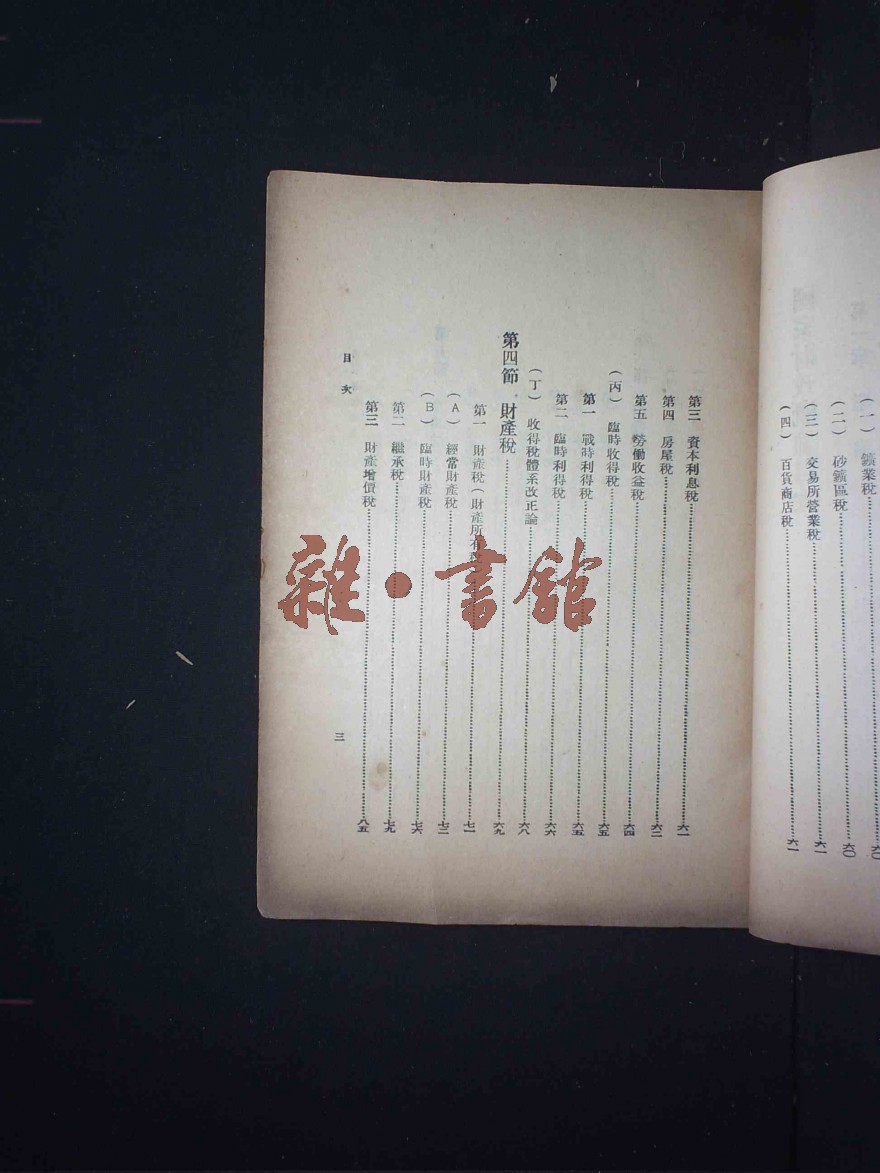 (一) 鑛業稅……六〇
(二) 砂鑛區稅……六〇
(三) 交易所營業稅……六一
(四) 百貨商店稅……六一
第三 資本利息稅……六一
第四 房屋稅……六二
第五 勞働收益稅……六四
(丙) 臨時收得稅……六五
第一 戰時利得稅……六五
第二 臨時利得稅……六六
(丁) 收得稅體系改正論……六八
第四節 財產稅……六九
第一 財產稅(財產所有稅)……七一
(A) 經常財產稅……七二
(B) 臨時財產稅……七六
第二 繼承稅……七九
第三 財產增價稅……八五
目次
三
雜·書館